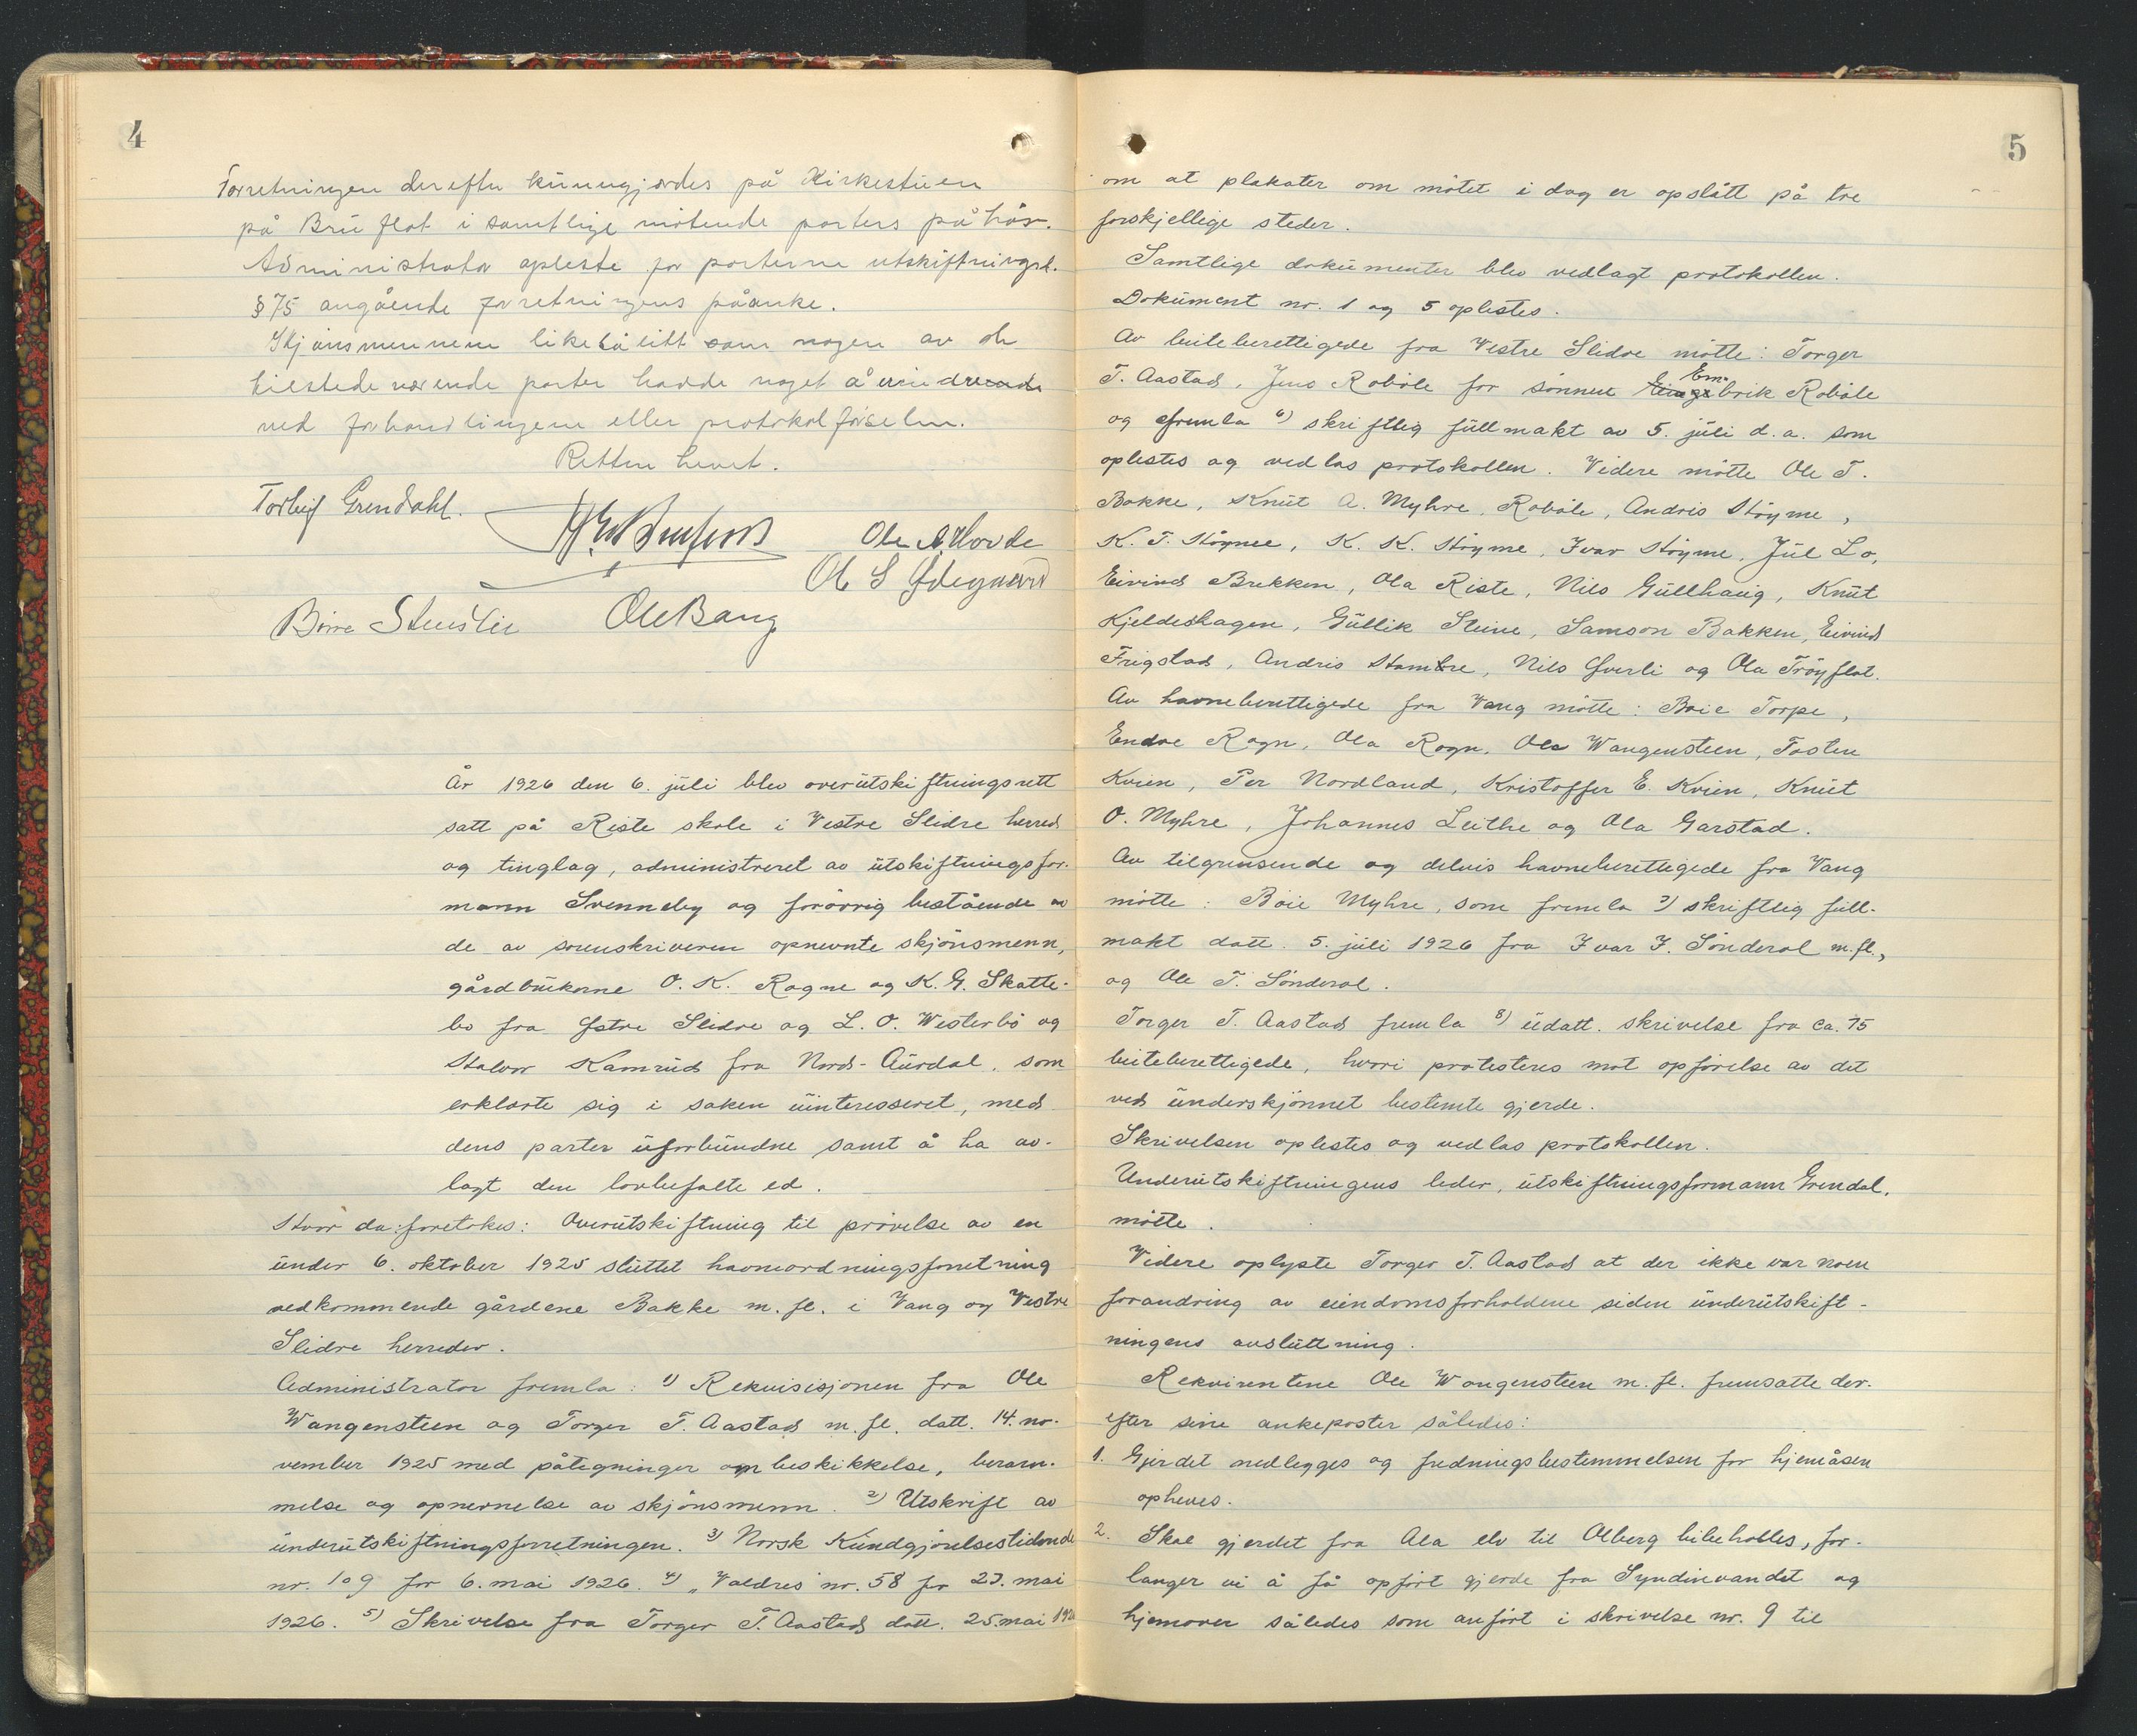 4
Forretningen derefter kunngjordes på Kirkestuen
på Bruflat i samtlige møtende parters påhør.
Administrator opleste for parterne utskiftningsl.
§ 75 angående forretningens påanke.
Skjønsmennene likeså litt som nogen av de
tilstedeværende parter hadde noget å erindre
ved forhandlingene eller protokolførselen.
Retten hevet.
Torleif Grendahl.
Ole A. Hovde
Ol. S. Ødegaard
Børre Stensli Ole Bang
År 1926 den 6. juli blev overutskiftningsrett
satt på Riste skole i Vestre Slidre herred
og tinglag, administreret av utskiftningsfor-
mann Svenneby og forøvrig bestående av
de av sorenskriveren opnevnte skjønsmenn,
gårdbrukerne O. K. Rogne og K. G. Skatte-
bo fra Østre Slidre og L. O. Westerbø og
Halvor Kamrud fra Nord-Aurdal, som
erklærte sig i saken uinteresseret, med
dens parter uforbundne samt å ha av-
lagt den lovbefalte ed.
Hvor da foretokes: Overutskiftning til prøvelse av en
under 6. oktober 1925 sluttet havneordningsforretning
vedkommende gårdene Bakke m. fl. i Vang og Vestre
Slidre herreder.
Administrator fremla: 1) Rekvisisjonen fra Ole
Wangensteen og Torger T. Aastad m. fl. datt. 14. no-
vember 1925 med påtegninger om beskikkelse, beram-
melse og opnevnelse av skjønsmenn. 2) Utskrift av
underutskiftningsforretningen. 3) Norsk Kundgjørelsestidende
nr. 109 for 6. mai 1926. 4) „Valdres" nr. 58 for 23. mai
1926. 5) Skrivelse fra Torger T. Aastad datt. 25. mai 1926
5
om at plakater om møtet i dag er opslått på tre
forskjellige steder.
Samtlige dokumenter blev vedlagt protokollen.
Dokument nr. 1 og 5 oplestes.
Av beiteberettigede fra Vestre Slidre møtte: Torger
T. Aastad, Jens Robøle for sønnen Em.brik Robøle
og fremla 6) skriftlig fullmakt av 5. juli d.a. som
oplestes og vedlas protokollen. Videre møtte Ole T.
Bakke, Knut A. Myhre, Robøle, Andris Høyme,
K. T. Høyme, K. K. Høyme, Ivar Høyme, Jul Lo,
Eivind Brekken, Ola Riste, Nils Gullhaug, Knut
Kjeldeshagen, Gullik Steine, Samson Bakken, Eivind
Frigstad, Andris Hambre, Nils Qverli og Ola Trøyflat.
Av havneberettigede fra Vang møtte: Boie Torpe,
Endre Rogn, Ola Rogn, Ole Wangensteen, Tosten
Kvien, Per Nordland, Kristoffer E. Kvien, Knut
O. Myhre, Johannes Leithe og Ola Garstad.
Av tilgrensende og delvis havneberettigede fra Vang
møtte: Boie Myhre, som fremla 7) skriftlig full-
makt datt. 5. juli 1926 fra Ivar I. Sønderol m. fl.,
og Ole T. Sønderol.
Torger T. Aastad fremla 8) udatt. skrivelse fra ca. 75
beiteberettigede, hvori protesteres mot opførelse av det
ved underskjønnet bestemte gjerde.
Skrivelsen oplestes og vedlas protokollen.
Underutskiftningens leder, utskiftningsformann Grendal,
møtte.
Videre oplyste Torger T. Aastad at der ikke var noen
forandring av eiendomsforholdene siden underutskift-
ningens avsluttning.
Rekvirentene Ole Wangensteen m. fl. fremsatte der-
efter sine ankeposter således:
1. Gjerdet nedlegges og fredningsbestemmelsen for hjemåsen
opheves.
2. Skal gjerdet fra Ala elv til Olberg bibeholdes, for-
langer vi å få opført gjerde fra Syndinvandet og
hjemover således som anført i skrivelse nr. 9 til